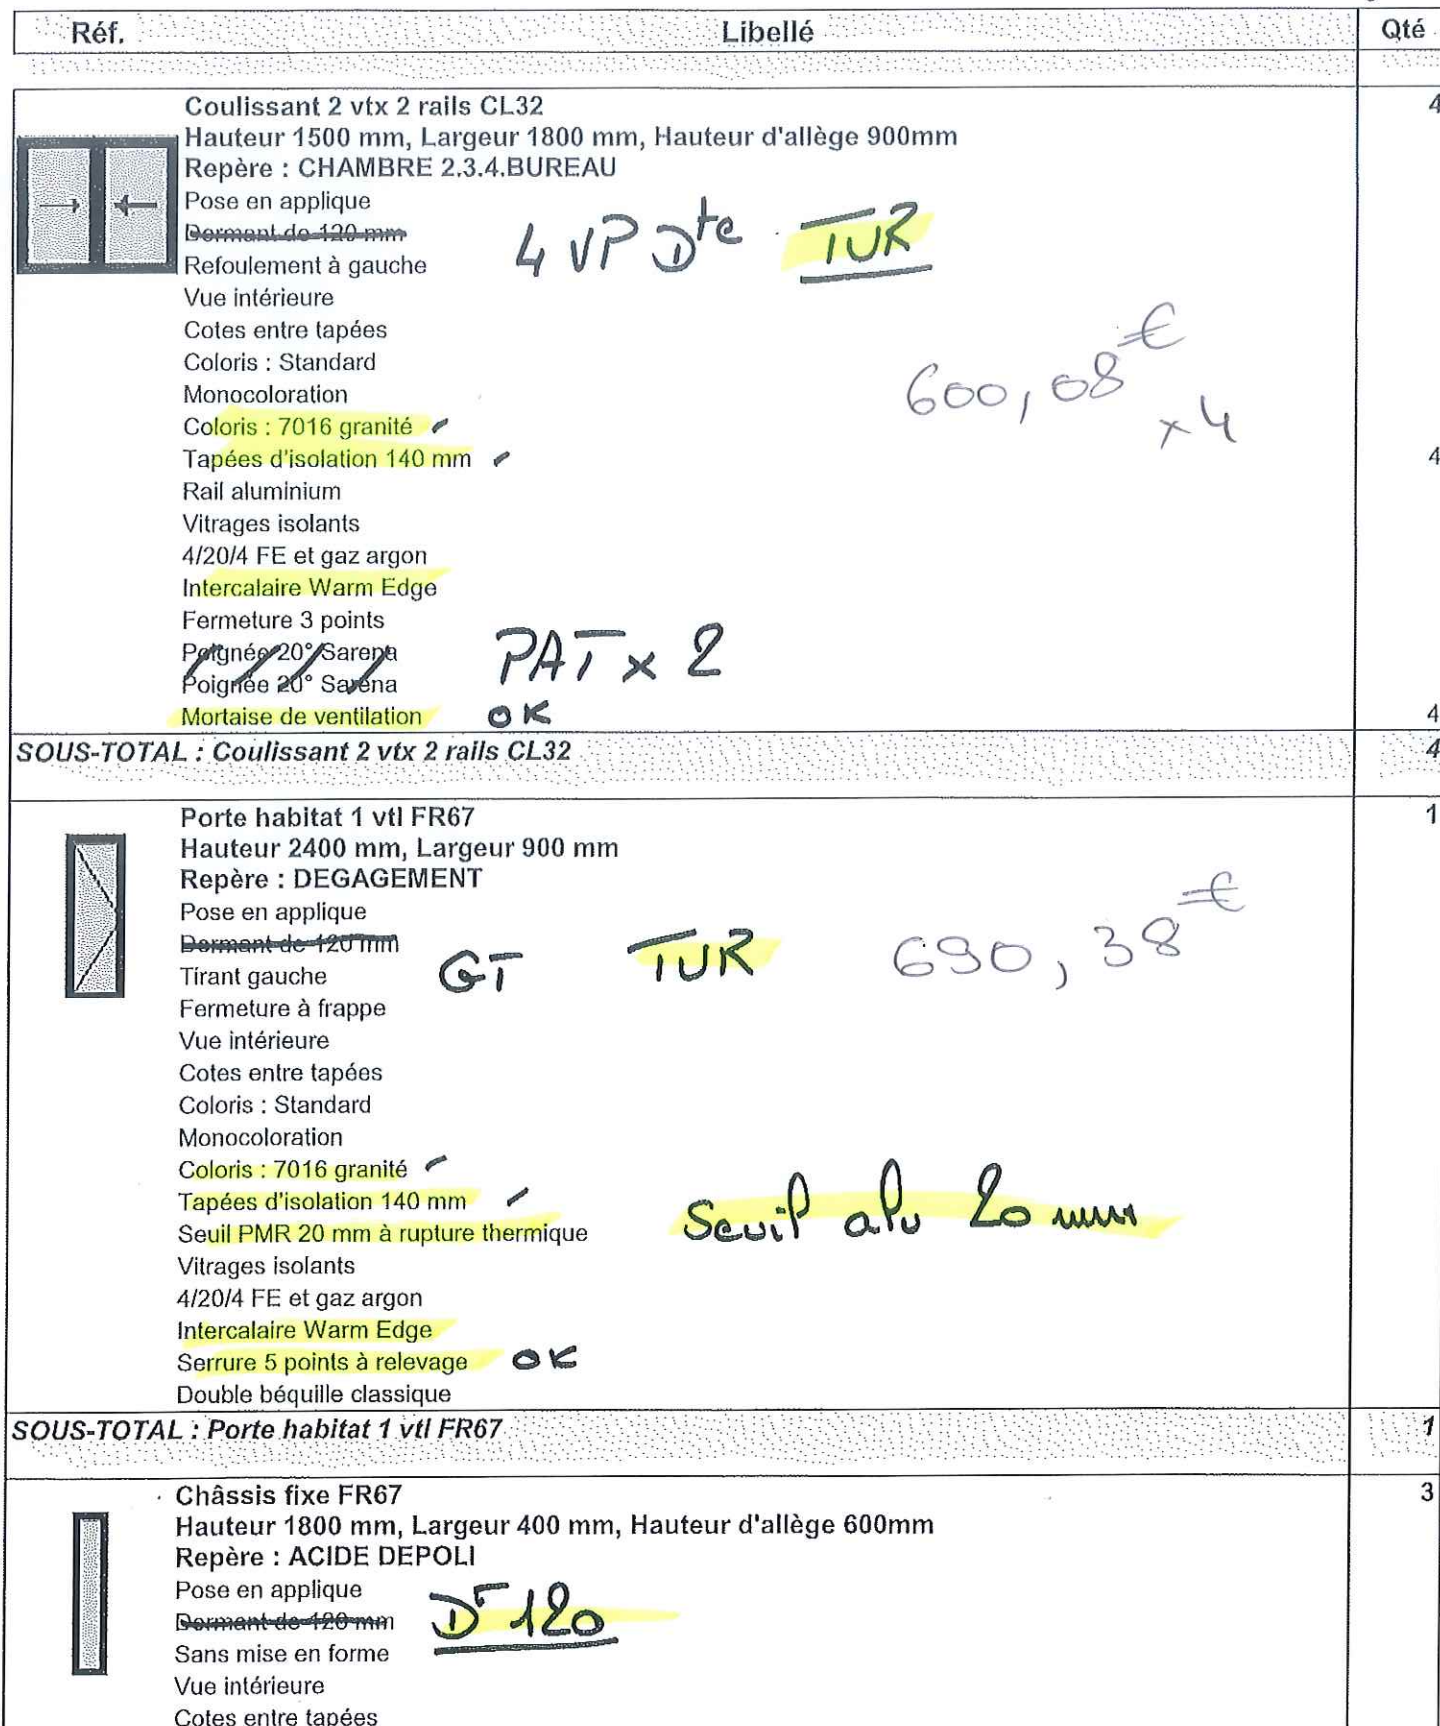 Réf. Libellé Qté
Coulissant 2 vtx 2 rails CL32 4
Hauteur 1500 mm, Largeur 1800 mm, Hauteur d'allège 900mm
Repère : CHAMBRE 2.3.4.BUREAU
Pose en applique
Dormant de 120 mm
4 VP Dte TUR
Refoulement à gauche
Vue intérieure
Cotes entre tapées
600,08 €
x 4
Coloris : Standard
Monocoloration
Coloris : 7016 granité
Tapées d'isolation 140 mm 4
Rail aluminium
Vitrages isolants
4/20/4 FE et gaz argon
Intercalaire Warm Edge
Fermeture 3 points
Poignée 20° Sarena
PAT x 2
Poignée 20° Sarena
Mortaise de ventilation OK 4
SOUS-TOTAL : Coulissant 2 vtx 2 rails CL32 4
Porte habitat 1 vtl FR67 1
Hauteur 2400 mm, Largeur 900 mm
Repère : DEGAGEMENT
Pose en applique
Dormant de 120 mm
GT TUR 690,38 €
Tirant gauche
Fermeture à frappe
Vue intérieure
Cotes entre tapées
Coloris : Standard
Monocoloration
Coloris : 7016 granité
Tapées d'isolation 140 mm
Seuil alu 20 mm
Seuil PMR 20 mm à rupture thermique
Vitrages isolants
4/20/4 FE et gaz argon
Intercalaire Warm Edge
Serrure 5 points à relevage OK
Double béquille classique
SOUS-TOTAL : Porte habitat 1 vtl FR67 1
Châssis fixe FR67 3
Hauteur 1800 mm, Largeur 400 mm, Hauteur d'allège 600mm
Repère : ACIDE DEPOLI
Pose en applique
Dormant de 120 mm
Dt 120
Sans mise en forme
Vue intérieure
Cotes entre tapées